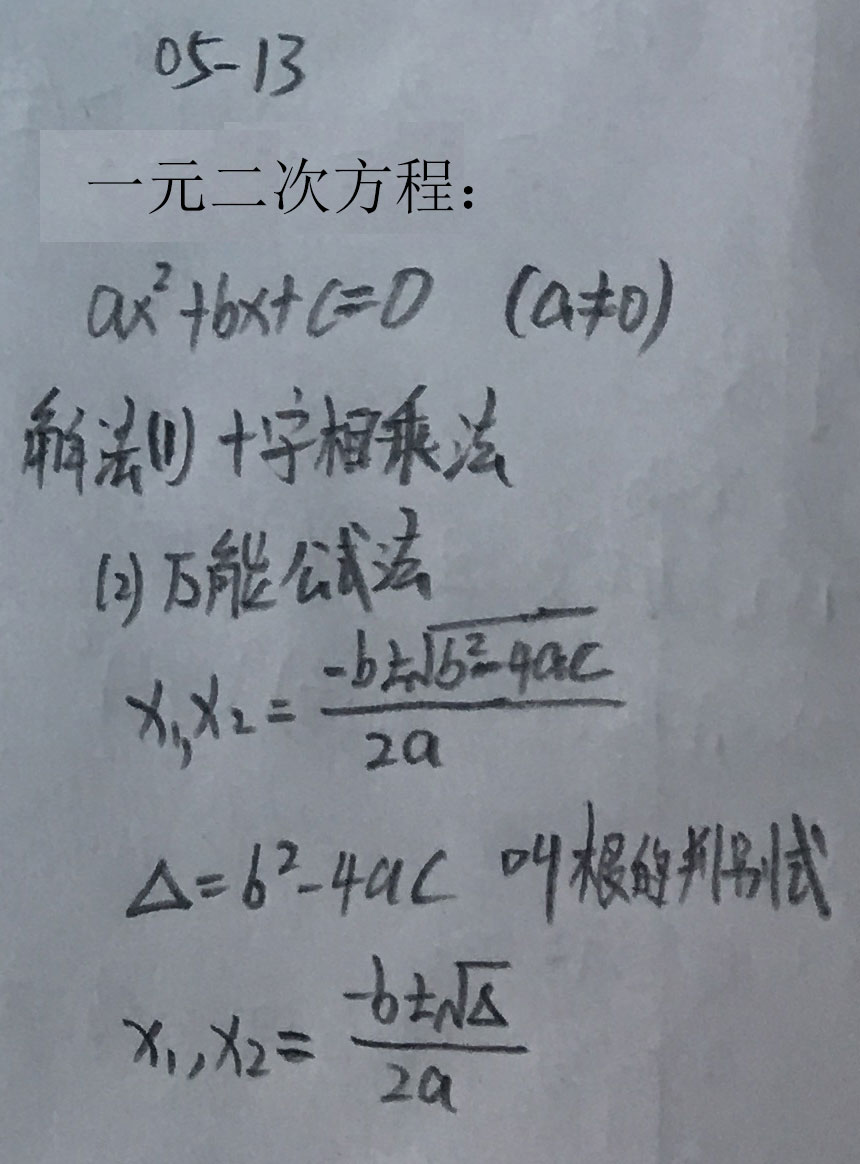 05-13
一元二次方程：
ax²+bx+c=0 (a≠0)
解法(1) 十字相乘法
(2) 万能公式法
x₁,x₂ = (-b±√(b²-4ac))/(2a)
△=b²-4ac 叫根的判别式
x₁,x₂ = (-b±√△)/(2a)